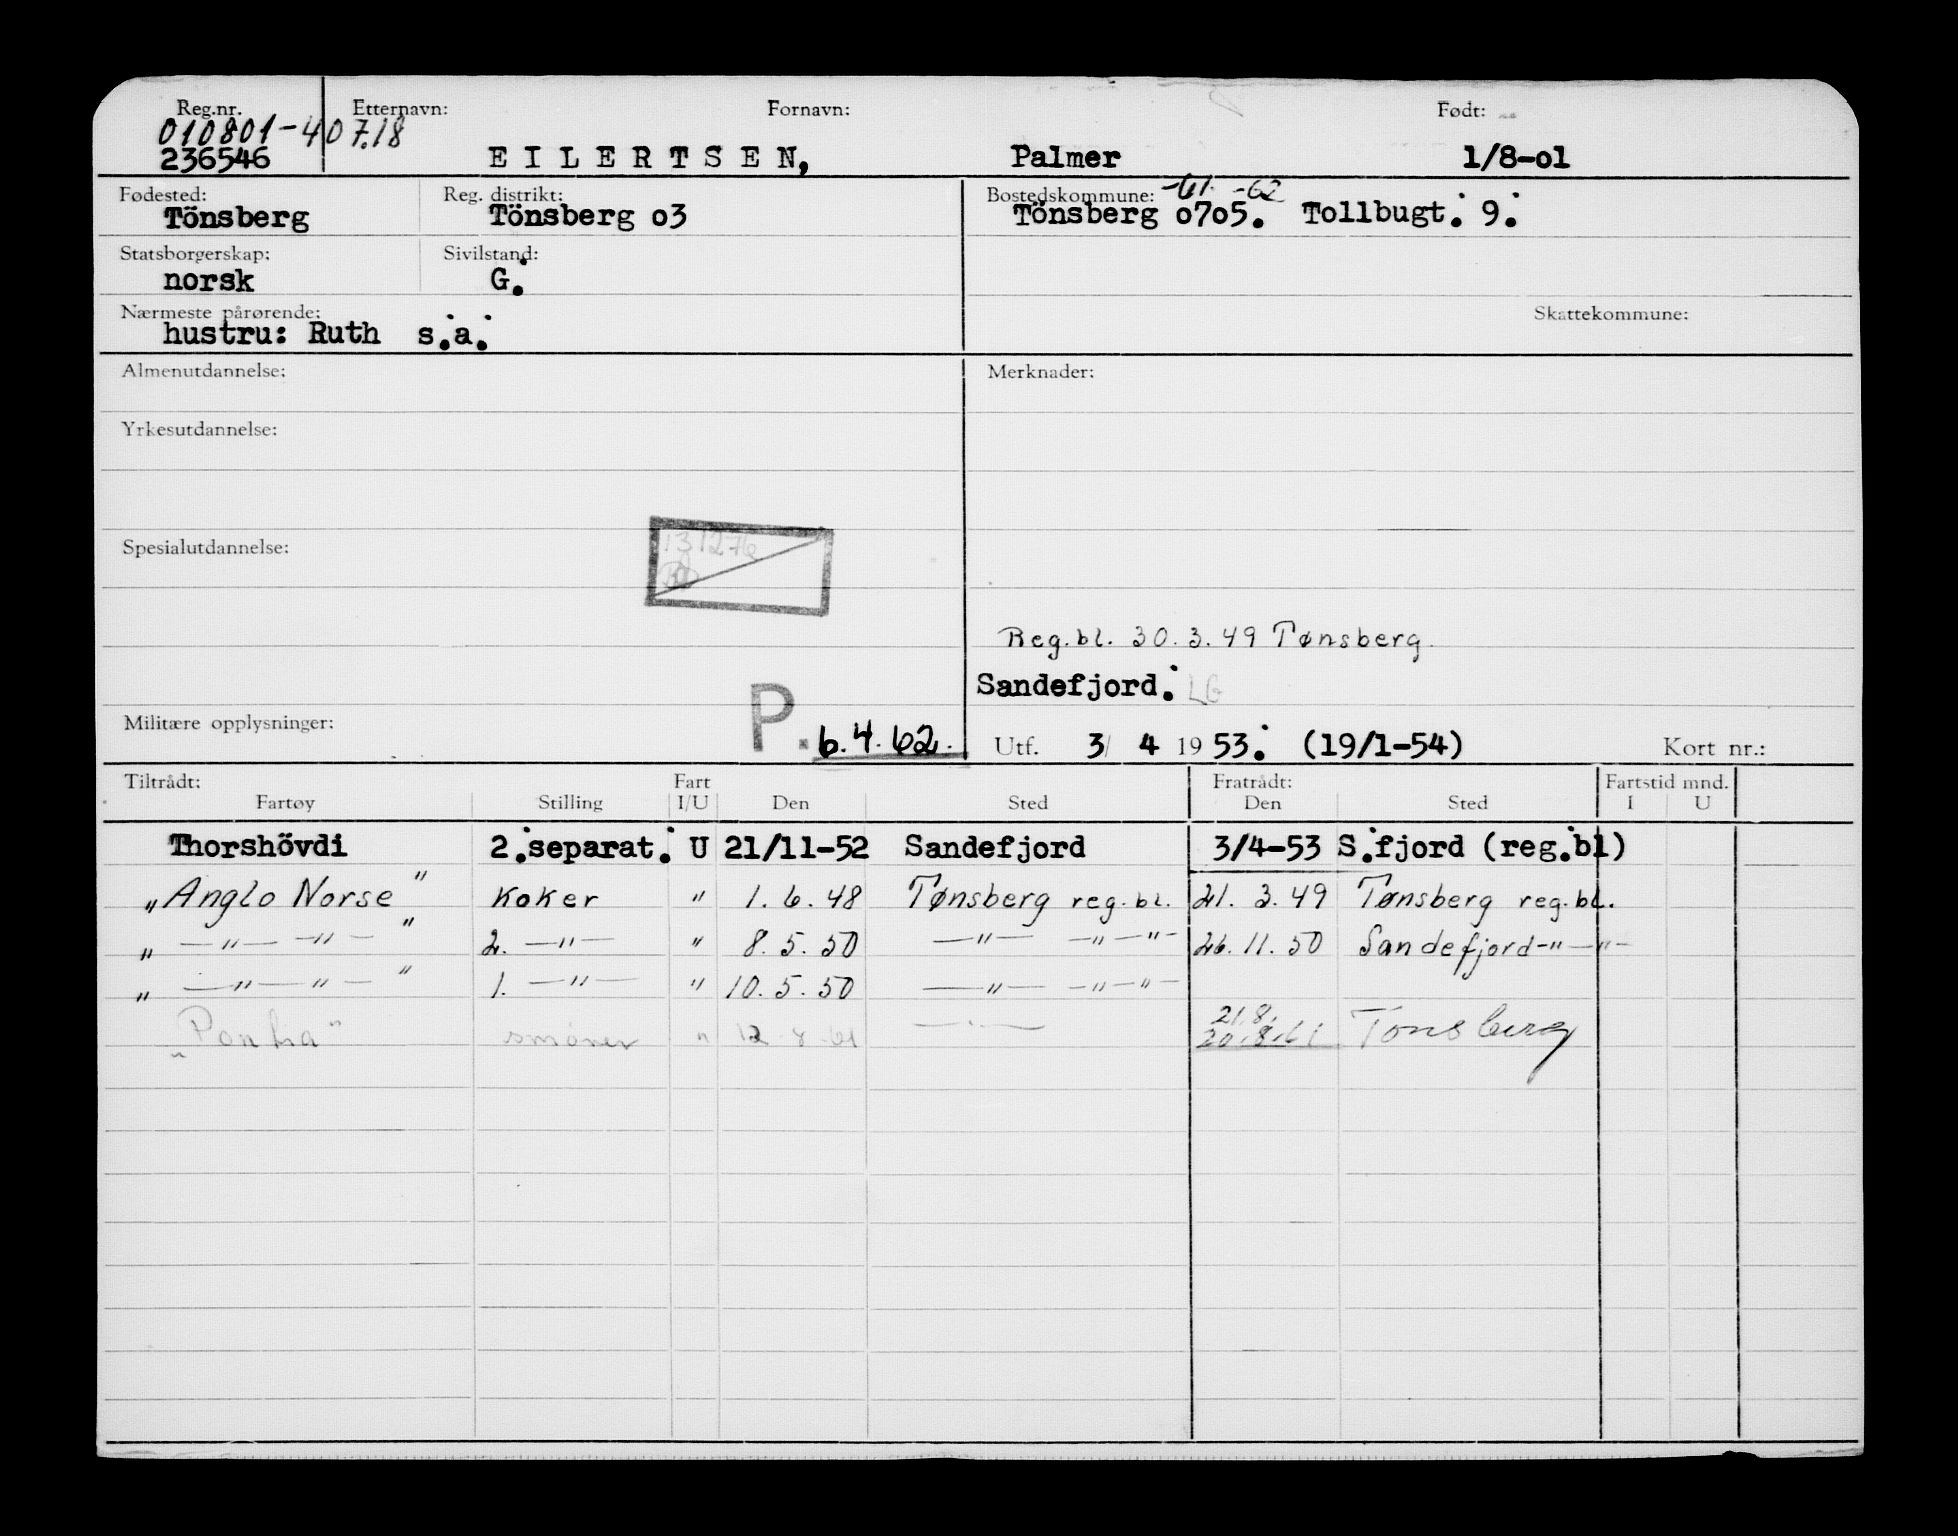 Reg.nr. Etternavn: Fornavn: Født:
010801-40718
236546 EILERTSEN, Palmer 1/8-o1
Fødested: Reg. distrikt: Bostedskommune: -61. -62
Tönsberg Tönsberg o3 Tönsberg o7o5. Tollbugt. 9.
Statsborgerskap: Sivilstand:
norsk G.
Nærmeste pårørende: Skattekommune:
hustru: Ruth s.a.
Almenutdannelse: Merknader:
Yrkesutdannelse:
131276
Spesialutdannelse:
Reg.bl. 30.3.49 Tønsberg.
Sandefjord. LG
Militære opplysninger: P. 6.4.62. Utf. 3/ 4 1953. (19/1-54) Kort nr.:
Tiltrådt: Fart Fratrådt: Fartstid mnd.
Fartøy Stilling I/U Den Sted Den Sted I U
Thorshövdi 2.separat. U 21/11-52 Sandefjord 3/4-53 S.fjord (reg.bl)
„Anglo Norse" Koker " 1.6.48 Tønsberg reg.bl. 21.3.49 Tønsberg reg.bl.
„ —"— —"— " 2. —"— " 8.5.50 —"— —"—"— 26.11.50 Sandefjord-"—"—
„ —"— —"— " 1. —"— " 10.5.50 —"— —"—"—
smører " 12.8.61 —"— 21.8.
20.8.61 Tønsberg